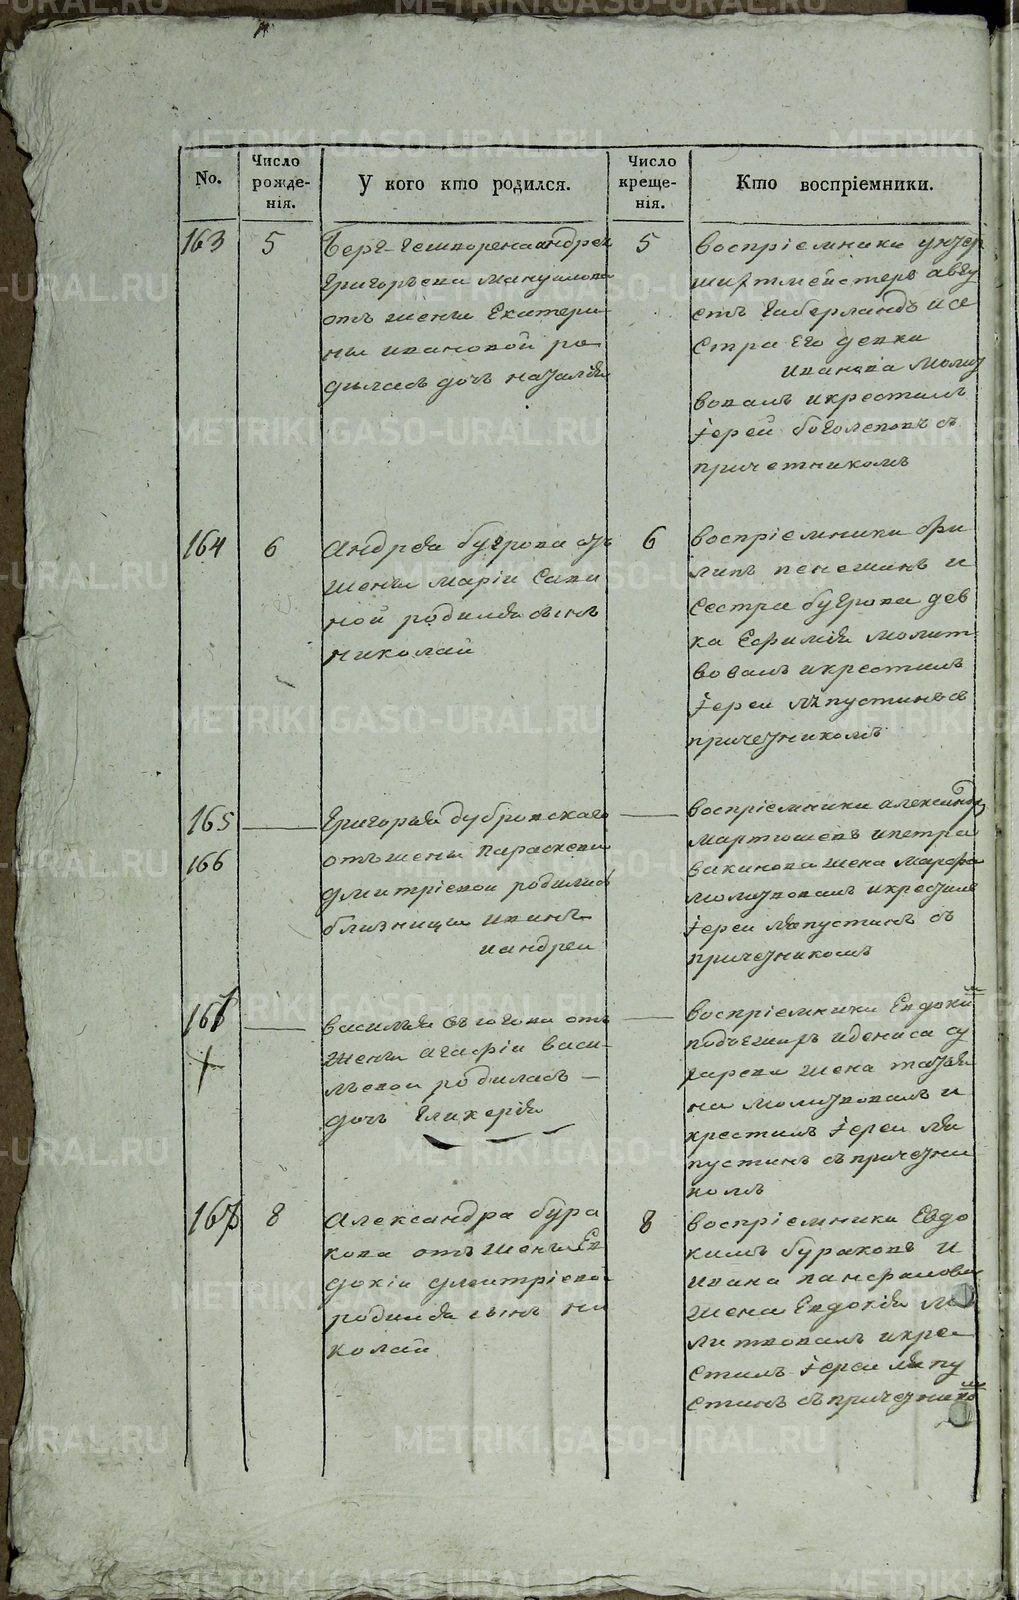 No.
Число рожде-нія.
У кого кто родился.
Число креще-нія.
Кто воспріемники.
163
5
Берг гешворена андрея
григорьева мануилова
отъ жены Екатери
ны ивановой ро
дилась дочь наталія
5
воспріемники унтер
шихтмейстеръ авгу
стъ габерландъ и се
стра Его девка
иванова молит
вовалъ и крестилъ
іерей боголеповъ съ
причетникомъ
164
6
андрея бугрова отъ
жены маріи сави
ной родился сынъ
николай
6
воспріемники фи
липъ пенешинъ и
сестра бугрова дев
ка Ефимия молит
вовалъ и крестилъ
іереи ляпустинъ съ
причетникомъ
165
григорья дубровскаго
воспріемники александр
166
отъ жены параскевы
дмитріевои родились
близницы иванъ
и андреи
мартюшевъ и петра
вакинова жена марфа
молитвовалъ и крестилъ
іереи ляпустинъ съ
причетникомъ
166
василья отъ
жены агафіи васи
льевои родилась
дочь гликерія
воспріемники Евдоким
и дениса су
харева жена татья
на молитвовалъ и
крестилъ іереи ля
пустинъ съ причетни
комъ
167
8
Александра бура
кова отъ жены Ев
докіи дмитріевой
родился сынъ ни
колаи
8
воспріемники Евдо
кимъ бураковъ и
ивана панфилова
жена Евдокия мо
литвовалъ и кре
стилъ іереи ляпу
стинъ съ причетником
METRIKI.GASO-URAL.RU